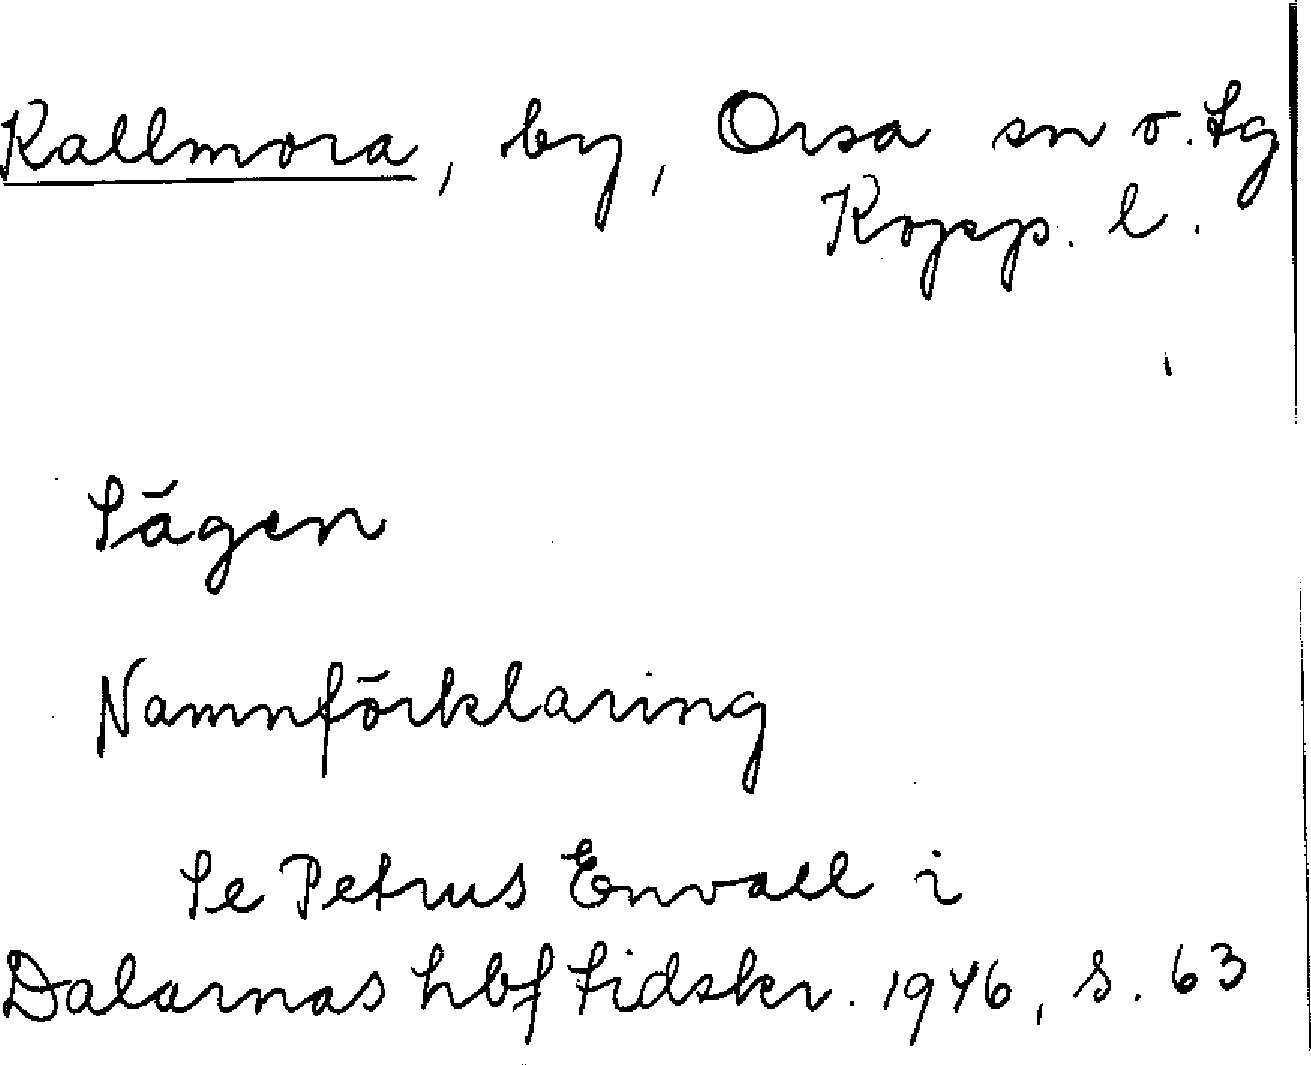 Kallmora, by, Orsa sn o. tg
Kopp. l.
Sägen
Namnförklaring
Se Petrus Envall i
Dalarnas hbf tidskr. 1946, s. 63